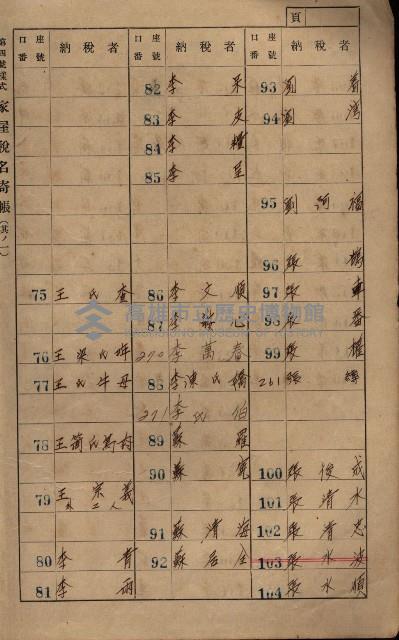 頁
第四號樣式 家屋稅名寄帳(其ノ一)
口座番號 納稅者
75 王氏查
76 王梁氏
77 王氏牛母
78 王簡氏
79 王宗義
外二人
80 李育
81 李雨
口座番號 納稅者
82 李呆
83 李皮
84 李糧
85 李呈
86 李文順
87 李
270 李萬春
88 李陳氏橋
271 李氏伯
89 蘇羅
90 蘇寬
91 蘇清海
92 蘇君全
口座番號 納稅者
93 劉着
94 劉灣
95 劉河福
96 張
97 張車
98 張番
99 張權
261 張
100 張俊成
101 張清水
102 張清忠
103 張水波
104 張水順
高雄市立歷史博物館
KAOHSIUNG MUSEUM OF HISTORY